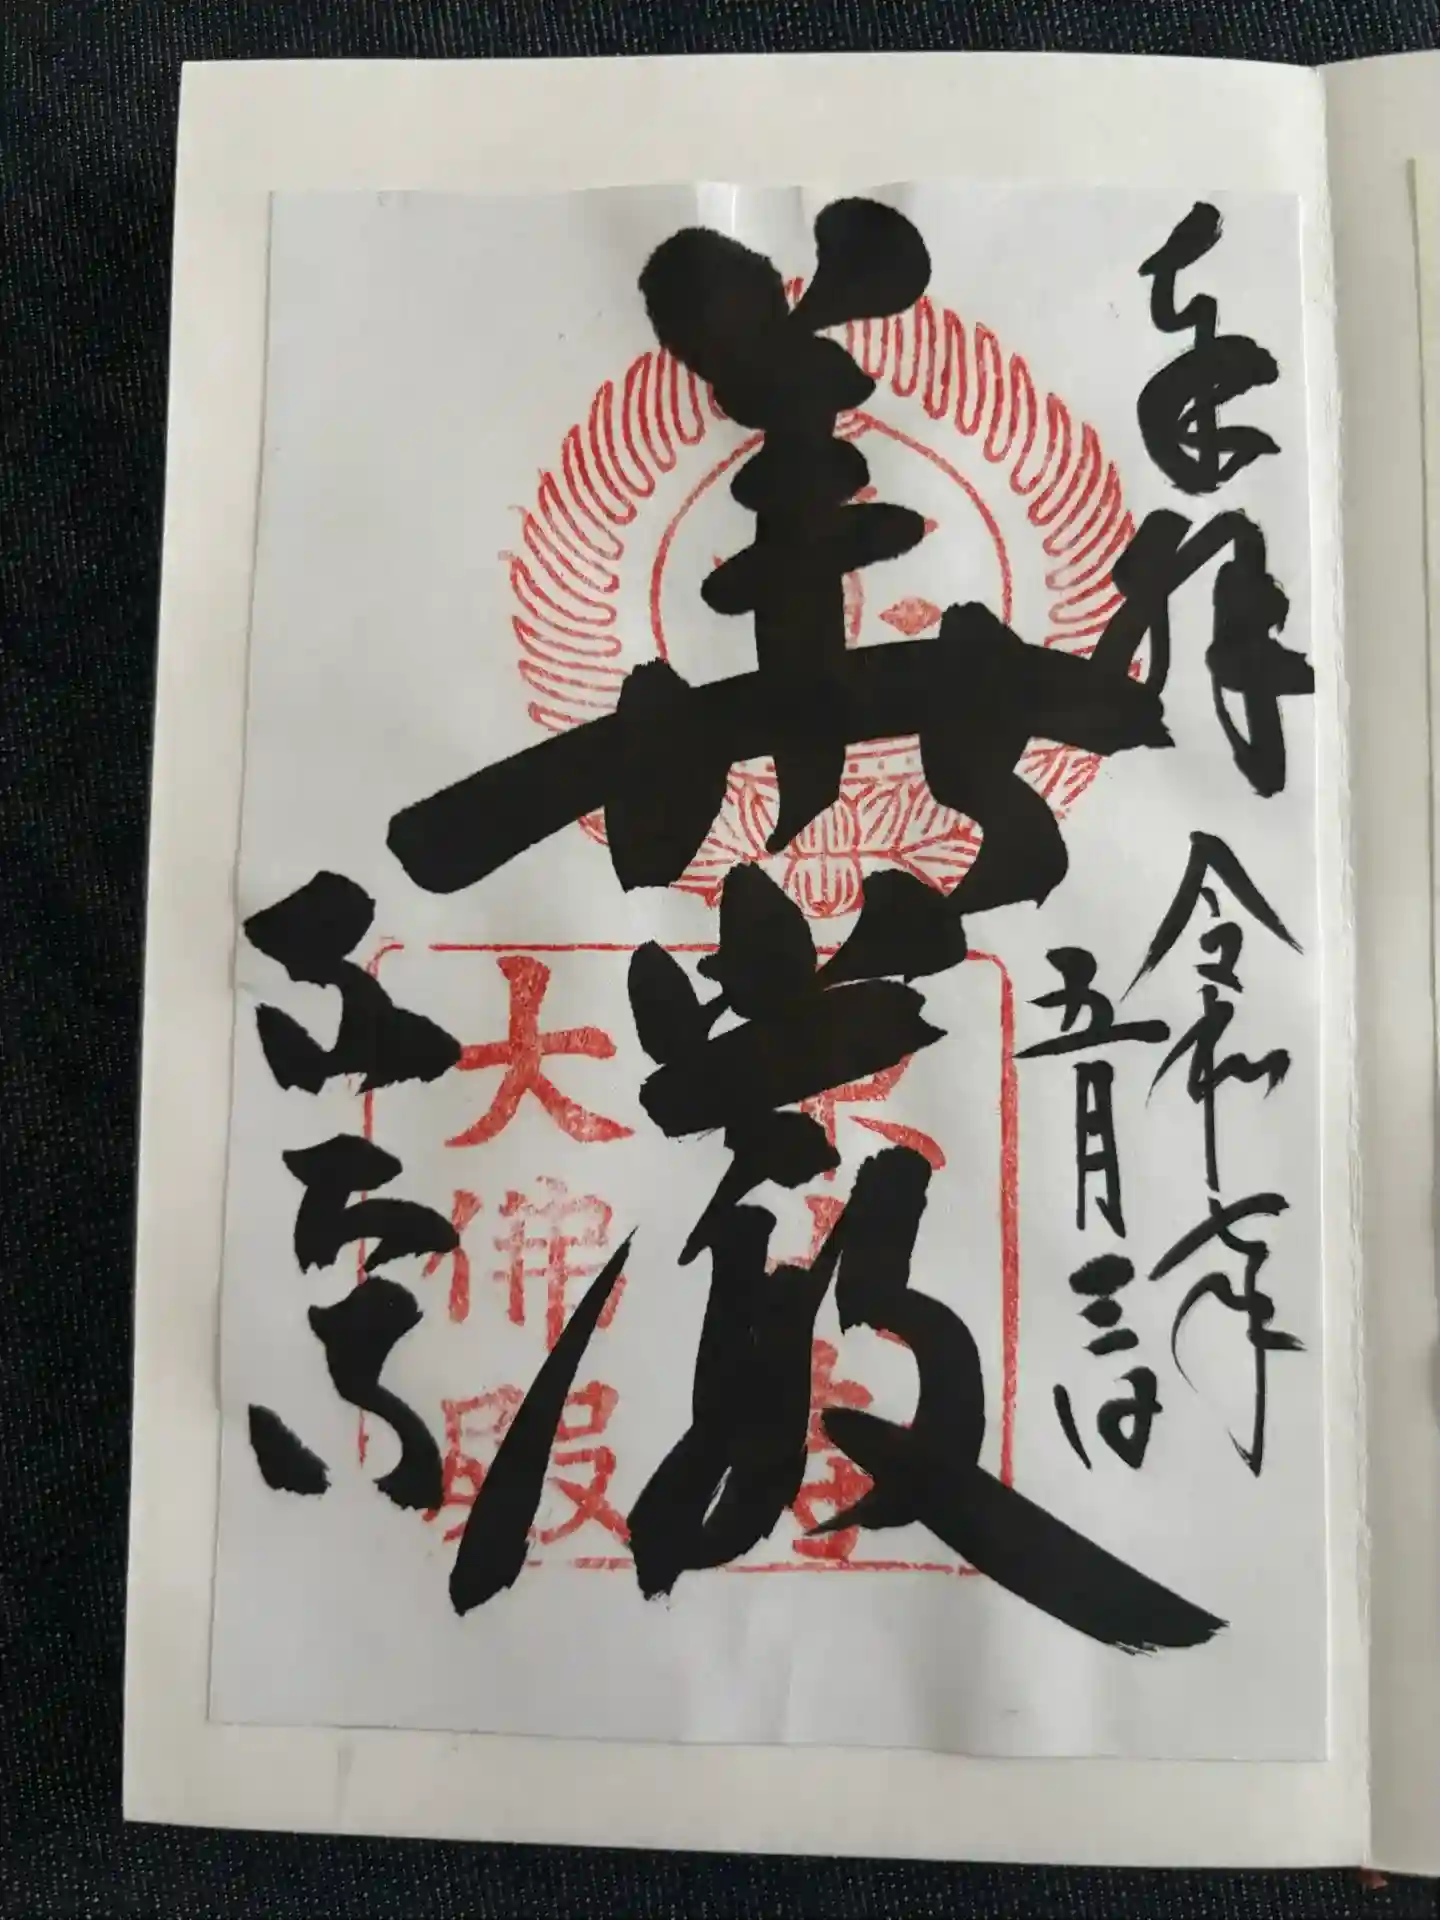 奉拝
令和七年
五月三日
華嚴
東大寺
大佛殿